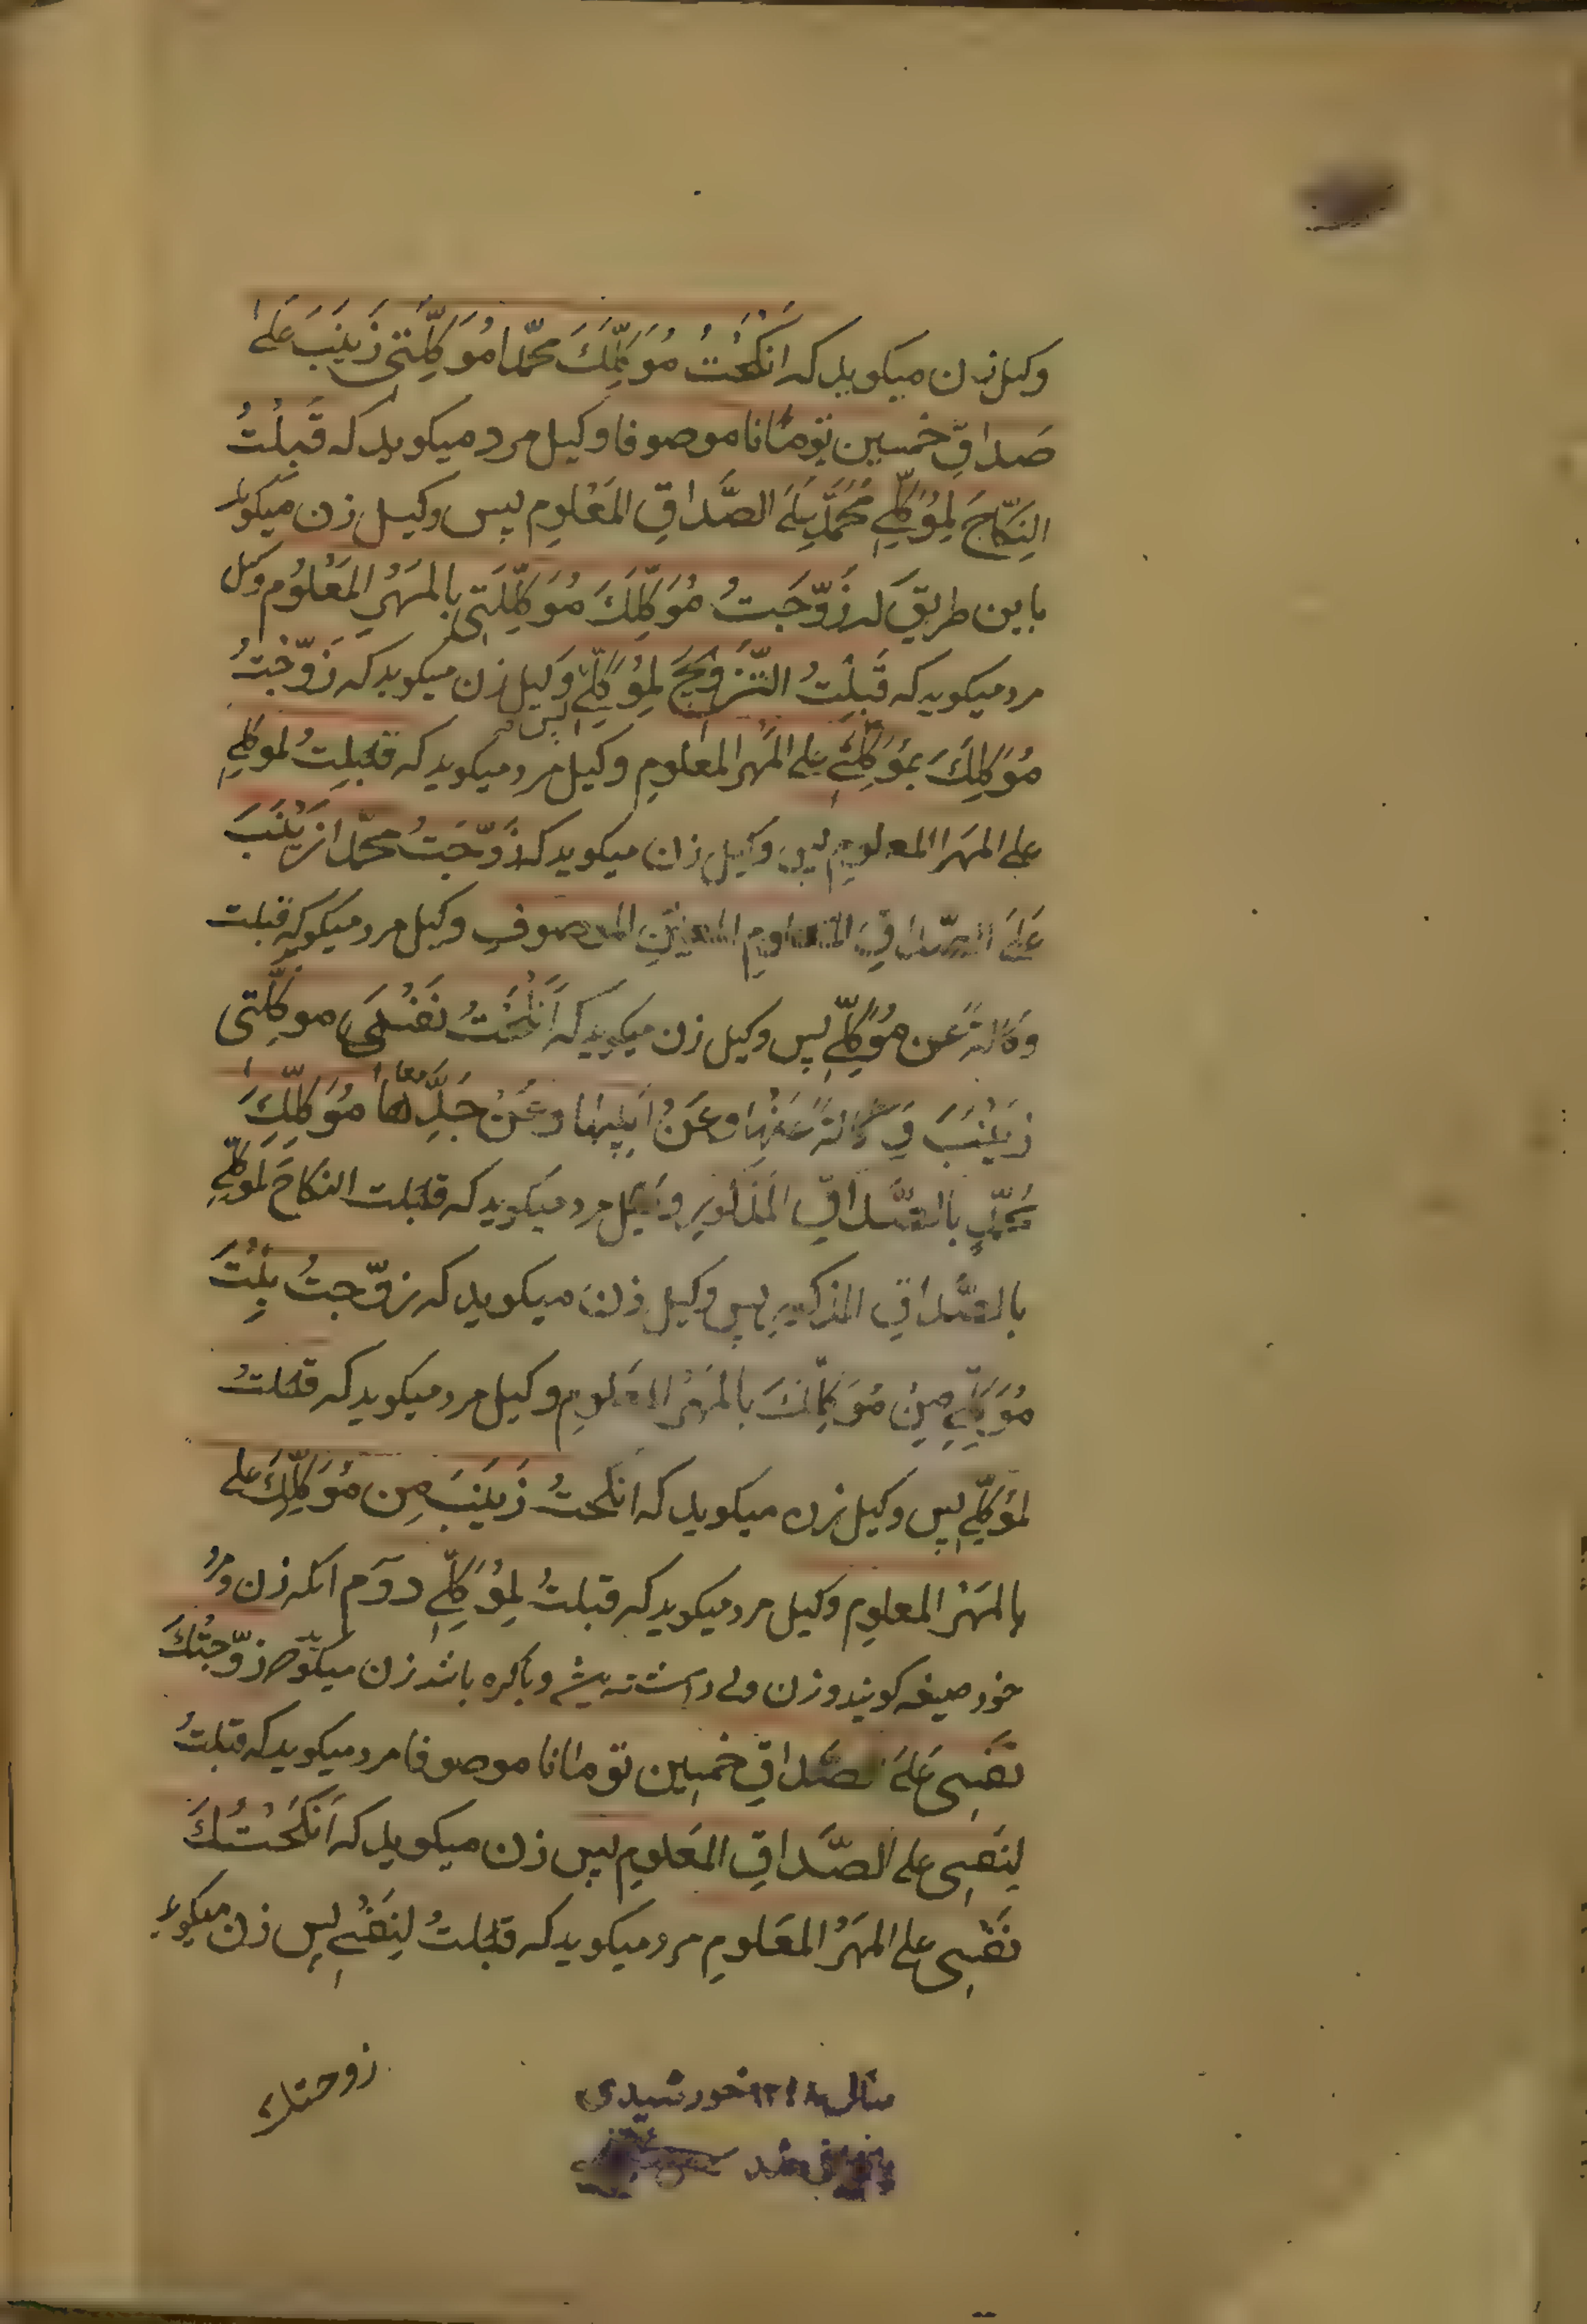 وکیل زن میکوید که انکحتُ مُوَکِّلَکَ محمّدا مُوَکِّلَتی زَینَبَ عَلَی
صَداقِ خمسین توماناً موصوفا وکیل مرد میکوید که قَبِلتُ
النِکاحَ لِمُوَکِّلی مُحَمَّدٍ عَلَی الصَّداقِ المَعْلومِ پس وکیل زن میکوید
باین طریق که زَوَّجَتُ مُوَکِّلَکَ مُوَکِّلَتی بِالمَهْرِ المَعْلُومِ وکیل
مرد میکوید که قَبِلتُ التَّزویجَ لِمُوَکِّلی پس وکیل زن میکوید که زَوَّجْتُ
مُوَکِّلَکَ بِمُوَکِّلَتی علی المَهْرِ المعلومِ وکیل مرد میکوید که قَبِلتُ لموکلی
علی المَهرِ المعلومِ پس وکیل زن میکوید که زَوَّجَتُ محمّدا زَیْنَبَ
عَلَی الصَّداقِ المعلومِ المعین الموصوفِ وکیل مرد میکوید که قبلت
وَکالةً عَن مُوَکِّلی پس وکیل زن میکوید که اَنکَحْتُ نَفْسَ موکّلتی
زَیْنَبَ وَکالةً عَنْها وعَنْ اَبیها وعَنْ جَدِّها معا مُوَکِّلَکَ
مُحمّدٍ بالصَّداقِ المَذکورِ وکیل مرد میکوید که قبلت النکاحَ لمُوَکِّلی
بالصَّداقِ المذکورِ پس وکیل زن میکوید که زوّجتُ بِنْتَ
مُوَکِّلی مِنْ مُوَکِّلِکَ بِالمَهْرِ المعَلومِ وکیل مرد میکوید که قَبلتُ
لمُوَکِّلی پس وکیل زن میکوید که انکحتُ زَینَبَ مِن مُوَکِّلِکَ علی
بالمَهْرِ المعلومِ وکیل مرد میکوید که قبلتُ لِمُوَکِّلی دوّم آنکه زن ومرد
خود صیغه کویند وزن ولی داشته وباکره باشد زن میکوید زوّجتُکَ
نَفْسی عَلَی صَداقِ خمسین توماناً موصوفا مرد میکوید که قبلتُ
لِنَفسی علی الصَّداقِ المَعلومِ پس زن میکوید که اَنکَحْتُکَ
نَفْسی علی المَهْرِ المعَلومِ مرد میکوید که قبلتُ لِنَفْسی پس زن میکوید
زوجتک
سال ۱۳۴۸ خورشیدی
بازبینی شد